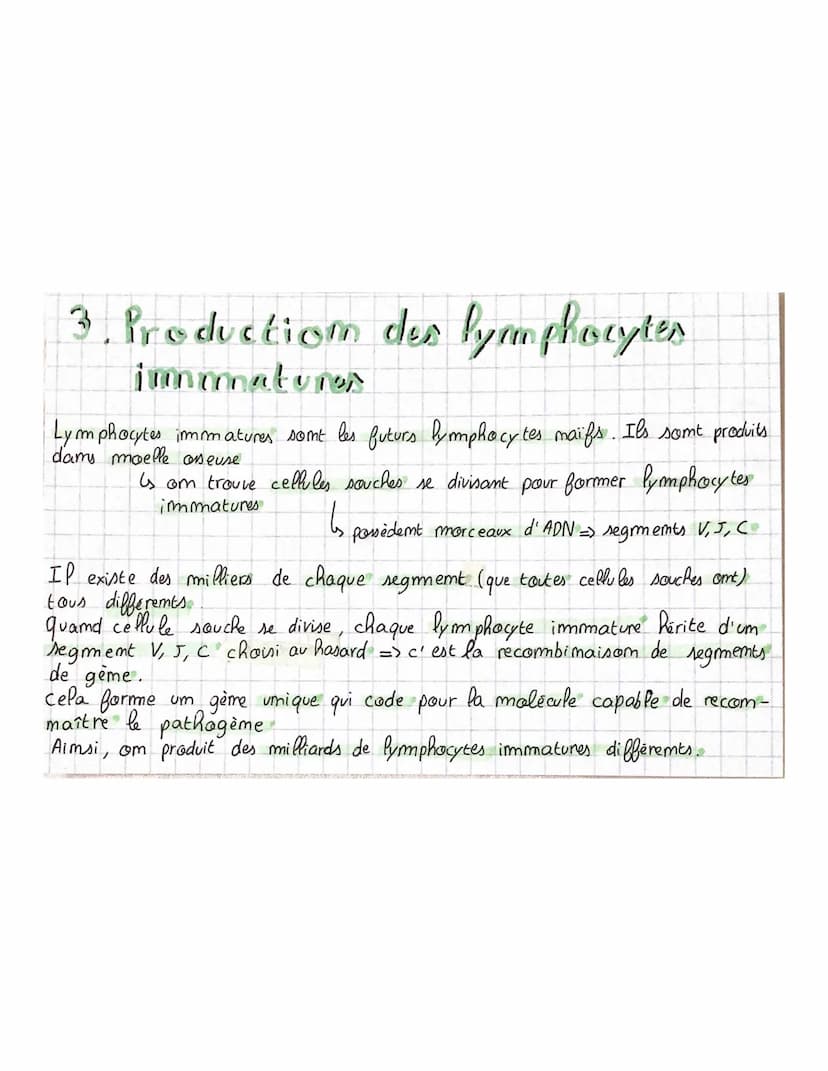 3. Production des lymphocytes
immatures
Lymphocytes immatures sont les futurs lymphocytes naïfs. Ils sont produits
dans moelle osseuse
↳ on trouve cellules souches se divisant pour former lymphocytes
immatures
↳ possèdent morceaux d'ADN => segments V, J, C
Il existe des milliers de chaque segment (que toutes cellules souches ont)
tous différents.
Quand cellule souche se divise, chaque lymphocyte immature hérite d'un
segment V, J, C choisi au hasard => c'est la recombinaison de segments
de gène.
Cela forme un gène unique qui code pour la molécule capable de recon-
naître le pathogène
Ainsi, on produit des milliards de lymphocytes immatures différents.